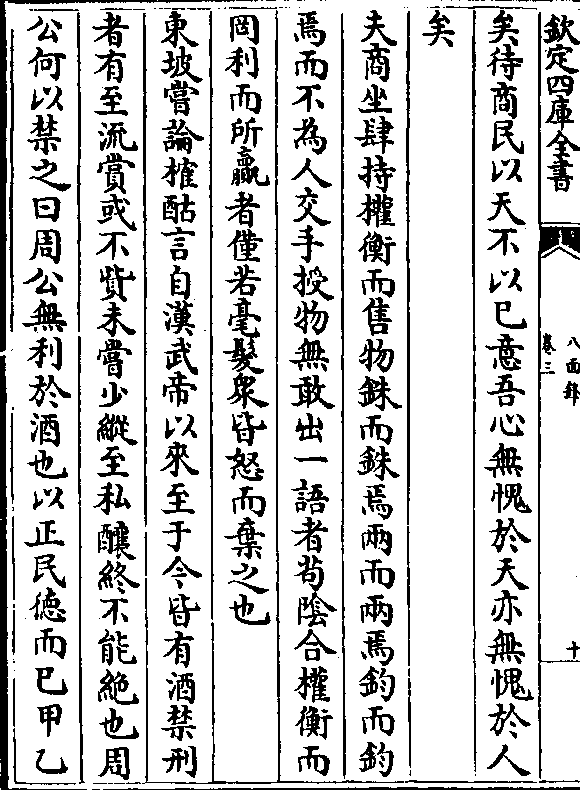 欽定四庫全書
八面鋒
卷三
十
矣待商民以天不以已意吾心無愧於天亦無愧於人
矣
夫商坐肆持權衡而售物銖而銖焉兩而兩焉鈞而鈞
焉而不為人交手授物無敢出一語者苟陰合權衡而
罔利而所贏者僅若毫髮衆皆怒而棄之也
東坡嘗論榷酤言自漢武帝以來至于今皆有酒禁刑
者有至流賞或不貲未嘗少縱至私釀終不能絶也周
公何以禁之曰周公無利於酒也以正民德而已甲乙